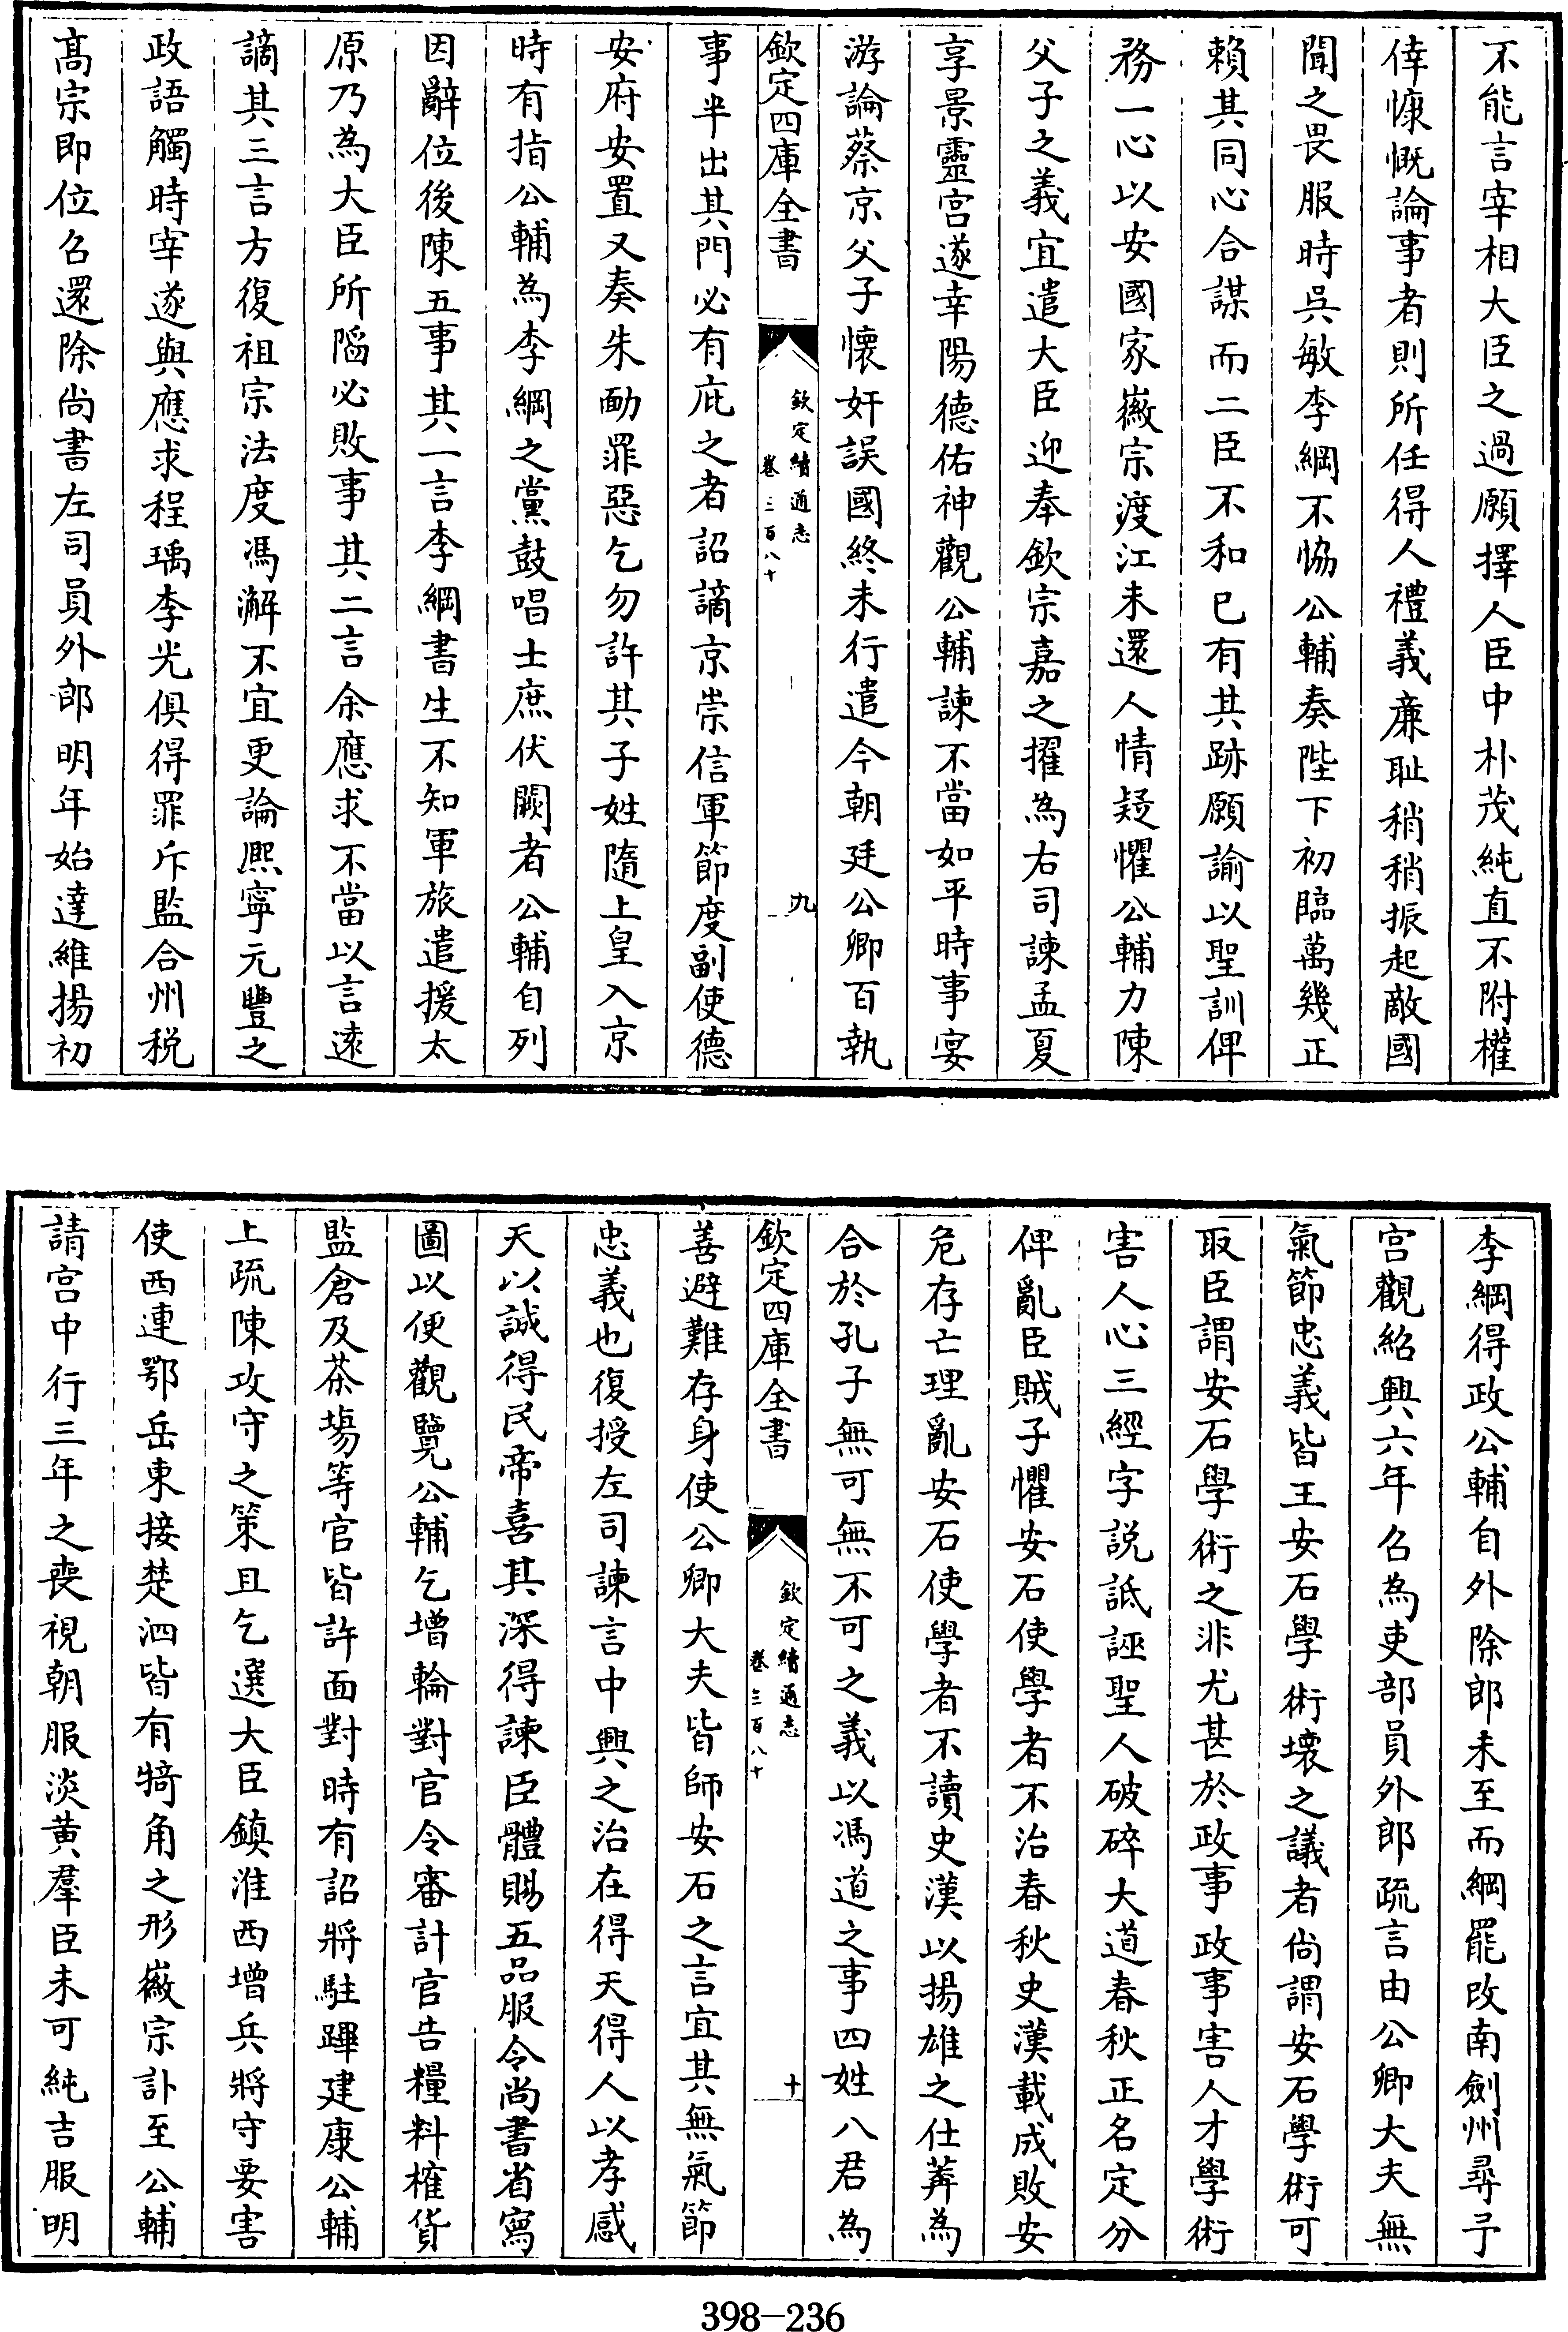 不能言宰相大臣之過願擇人臣中朴茂純直不附權
倖慷慨論事者則所任得人禮義廉耻稍稍振起敵國
聞之畏服時呉敏李綱不恊公輔奏陛下初臨萬幾正
賴其同心合謀而二臣不和已有其跡願諭以聖訓俾
務一心以安國家徽宗渡江未還人情疑懼公輔力陳
父子之義宜遣大臣迎奉欽宗嘉之擢為右司諫孟夏
享景靈宫遂幸陽德佑神觀公輔諫不當如平時事宴
游論蔡京父子懷奸誤國終未行遣今朝廷公卿百執
欽定四庫全書
欽定續通志
卷三百八十
九
事半出其門必有庇之者詔謫京崇信軍節度副使德
安府安置又奏朱勔罪惡乞勿許其子姓隨上皇入京
時有指公輔為李綱之黨鼓唱士庶伏闕者公輔自列
因辭位後陳五事其一言李綱書生不知軍旅遣援太
原乃為大臣所陷必敗事其二言余應求不當以言逺
謫其三言方復祖宗法度馮澥不宜更論熙寧元豐之
政語觸時宰遂與應求程瑀李光俱得罪斥監合州税
髙宗即位召還除尚書左司員外郎明年始達維揚初
李綱得政公輔自外除郎未至而綱罷改南劍州尋予
宫觀紹興六年召為吏部員外郎疏言由公卿大夫無
氣節忠義皆王安石學術壊之議者尚謂安石學術可
取臣謂安石學術之非尤甚於政事政事害人才學術
害人心三經字説詆誣聖人破碎大道春秋正名定分
俾亂臣賊子懼安石使學者不治春秋史漢載成敗安
危存亡理亂安石使學者不讀史漢以揚雄之仕莽為
合於孔子無可無不可之義以馮道之事四姓八君為
欽定四庫全書
欽定續通志
卷三百八十
十
善避難存身使公卿大夫皆師安石之言宜其無氣節
忠義也復授左司諫言中興之治在得天得人以孝感
天以誠得民帝喜其深得諫臣體賜五品服令尚書省寫
圖以便觀覽公輔乞增輪對官令審計官告糧料榷貨
監倉及茶塲等官皆許面對時有詔將駐蹕建康公輔
上疏陳攻守之策且乞選大臣鎮淮西增兵將守要害
使西連鄂岳東接楚泗皆有犄角之形徽宗訃至公輔
請宫中行三年之喪視朝服淡黄羣臣未可純吉服明
398-236